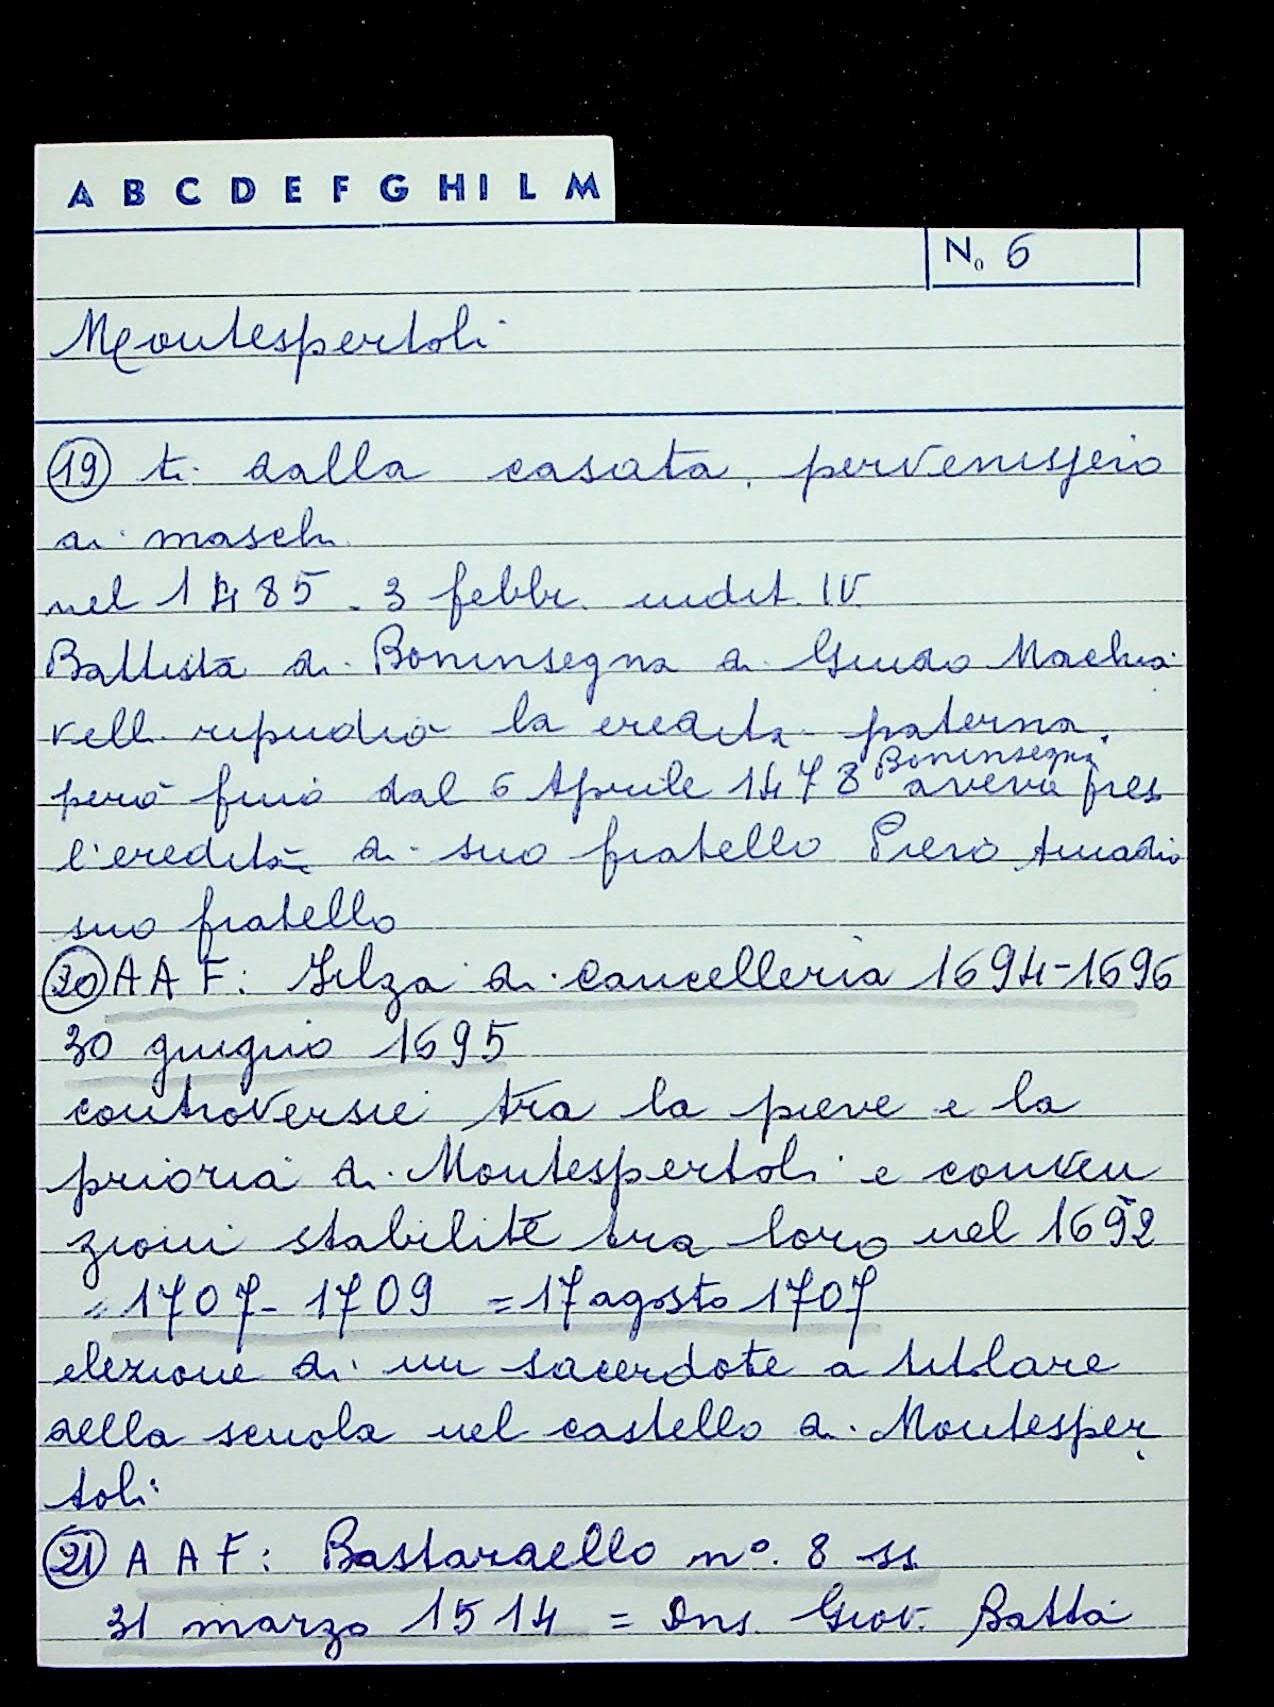 A B C D E F G H I L M
No 6
Montespertoli
19 ti dalla casata, pervenissero
ai maschi
nel 1485 - 3 febbr. indit. IV
Battista di Boninsegna di Guido Machia
velli ripudiò la eredità paterna.
però finò dal 6 Aprile 1478 Boninsegna aveva pres
l'eredità di suo fratello Piero
suo fratello
20 A A F: Filza di cancelleria 1694-1696
30 giugno 1695
controversie tra la pieve e la
prioria di Montespertoli e conven
zioni stabilite tra loro nel 1692
= 1707- 1709 = 17 agosto 1707
elezione di un sacerdote a titolare
della scuola nel castello di Montesper
toli
21 A A F: Bastardello n°. 8 ss
31 marzo 1514 = Dns. Giov. Batta